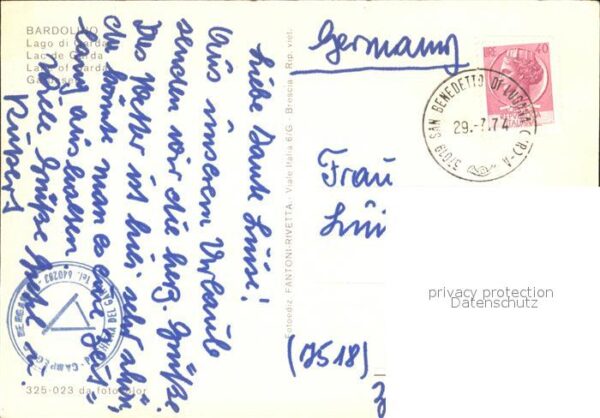 BARDOLINO
Lago di Garda
Lac de Garda
Lake of Garda
Gardasee
Liebe Tante Luise!
Aus unserem Urlaub
senden wir die herzl. Grüße.
Das Wetter ist hier sehr schön,
da könnte man es eine Zeit=
lang aushalten.
Viele Grüße
Fotoediz. FANTONI-RIVETTA - Viale Italia 6/G - Brescia - Rip. viet.
Germany
LIRE 40
37019 SAN BENEDETTO DI LUGANA (VR) - A
29.-7.74
Frau
Lui
(7518)
privacy protection
Datenschutz
Tel. 640283
325-023 da fotocolor